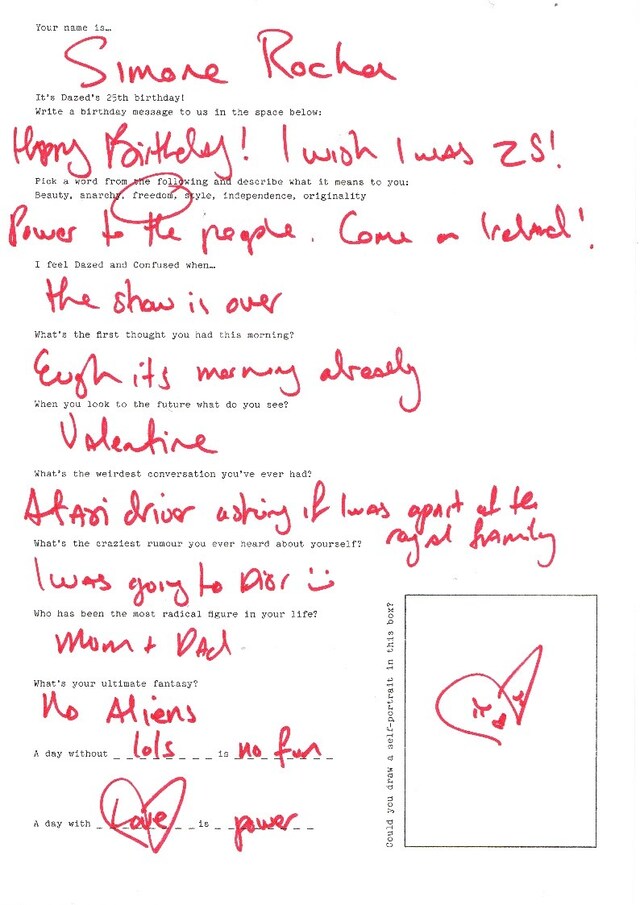 Your name is…
Simone Rocha
It's Dazed's 25th birthday!
Write a birthday message to us in the space below:
Happy Birthday! I wish I was 25!
Pick a word from the following and describe what it means to you:
Beauty, anarchy, freedom, style, independence, originality
Power to the people. Come on Ireland!
I feel Dazed and Confused when…
the show is over
What's the first thought you had this morning?
Eugh its morning already
When you look to the future what do you see?
Valentine
What's the weirdest conversation you've ever had?
A taxi driver asking if I was apart of the
royal family
What's the craziest rumour you ever heard about yourself?
I was going to Dior :)
Who has been the most radical figure in your life?
Mom + Dad
What's your ultimate fantasy?
No Aliens
A day without lols is no fun
A day with Love is power
Could you draw a self-portrait in this box?